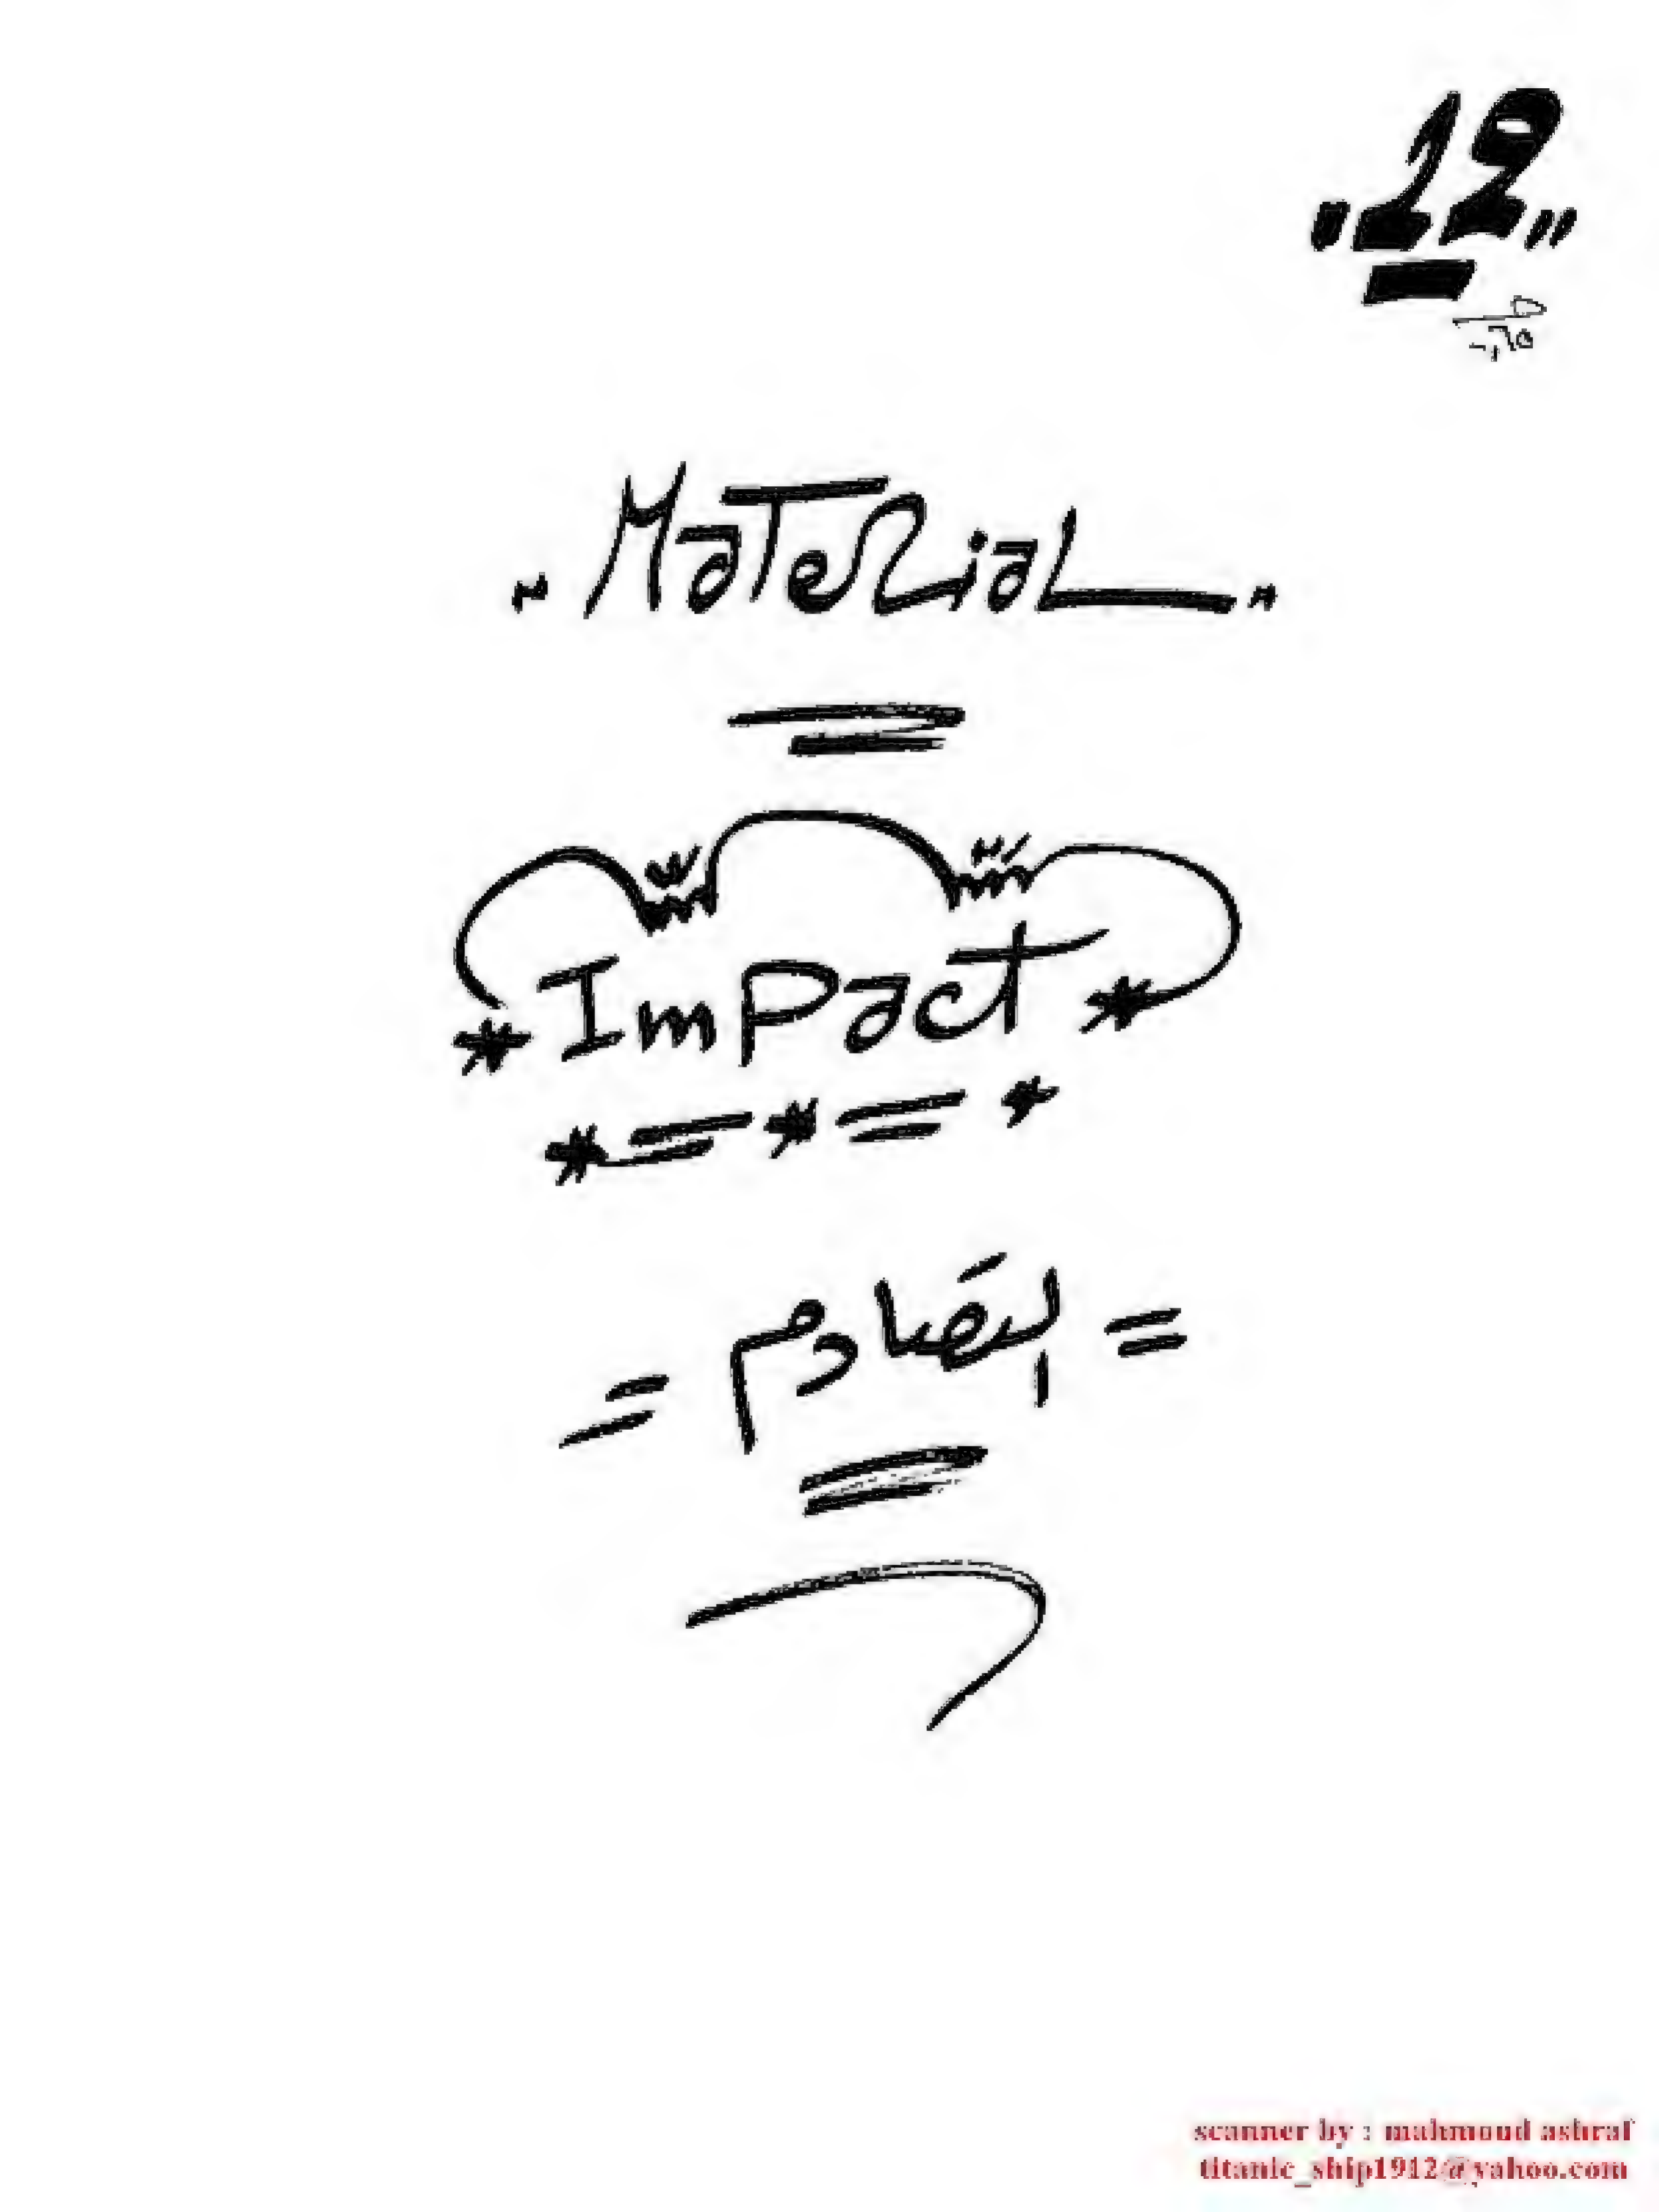 "12"
"Material"
* Impact *
= التصادم =
scanner by : mahmoud ashraf
titanic_ship1912@yahoo.com